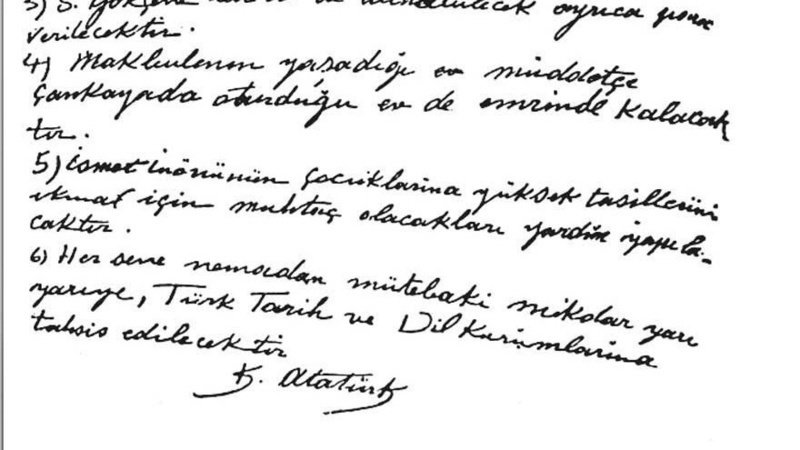 3) S. Gökçene ayrıca para
verilecektir.
4) Makbulenin yaşadığı ev müddetçe
Çankayada oturduğu ev de emrinde kalacak
tır.
5) İsmet İnönünün çocuklarına yüksek tasillerini
ikmal için muhtaç olacakları yardım yapıla-
caktır.
6) Her sene nemadan mütebaki mikdar yarı
yarıya, Türk Tarih ve Dil Kurumlarına
tahsis edilecektir
K. Atatürk